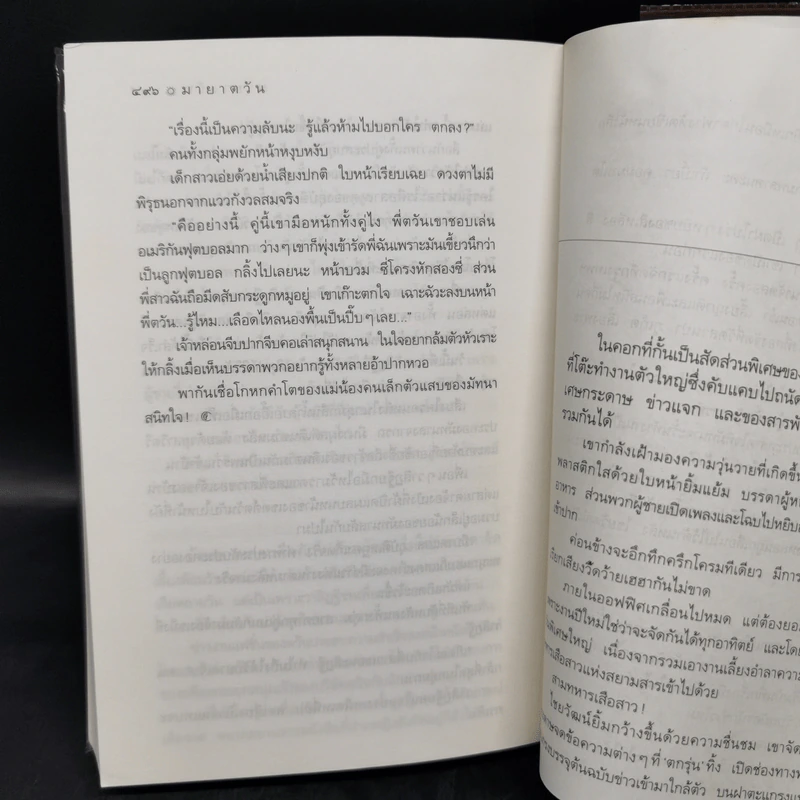 ๔๙๖ ۞ มายาตวัน
"เรื่องนี้เป็นความลับนะ รู้แล้วห้ามไปบอกใคร ตกลง?"
คนทั้งกลุ่มพยักหน้าหงุบหงับ
เด็กสาวเอ่ยด้วยน้ำเสียงปกติ ใบหน้าเรียบเฉย ดวงตาไม่มี
พิรุธนอกจากแววกังวลสมจริง
"คืออย่างนี้ คู่นี้เขามือหนักทั้งคู่ไง พี่ตวันเขาชอบเล่น
อเมริกันฟุตบอลมาก ว่างๆ เขาก็พุ่งเข้ารัดพี่ฉันเพราะมันเขี้ยวนึกว่า
เป็นลูกฟุตบอล กลิ้งไปเลยนะ หน้าบวม ซี่โครงหักสองซี่ ส่วน
พี่สาวฉันถือมีดสับกระดูกหมูอยู่ เขาก๊ะตกใจ เฉาะฉัวะลงบนหน้า
พี่ตวัน...รู้ไหม...เลือดไหลนองพื้นเป็นปี๊บๆ เลย..."
เจ้าหล่อนจีบปากจีบคอเล่าสนุกสนาน ในใจอยากล้มตัวหัวเราะ
ให้กลิ้งเมื่อเห็นบรรดาพวกอยากรู้ทั้งหลายอ้าปากหวอ
พากันเชื่อโกหกคำโตของแม่น้องคนเล็กตัวแสบของมัทนา
สนิทใจ!
ในคอกที่กั้นเป็นสัดส่วนพิเศษของ
ที่โต๊ะทำงานตัวใหญ่ซึ่งคับแคบไปถนัด
เศษกระดาษ ข่าวแจก และของสารพั
รวมกันได้
เขากำลังเฝ้ามองความวุ่นวายที่เกิดขึ้น
พลาสติกใสด้วยใบหน้ายิ้มแย้ม บรรดาผู้ห
อาหาร ส่วนพวกผู้ชายเปิดเพลงและโฉบไปหยิบ
เข้าปาก
ค่อนข้างจะอึกทึกครึกโครมทีเดียว มีการ
เรียกเสียงวี้ดว้ายเฮฮากันไม่ขาด
ภายในออฟฟิศเกลื่อนไปหมด แต่ต้องยอ
เพราะงานปีใหม่ใช่ว่าจะจัดกันได้ทุกอาทิตย์ และโด
พิเศษใหญ่ เนื่องจากรวมเอางานเลี้ยงอำลาความ
หารเสือสาวแห่งสยามสารเข้าไปด้วย
สามทหารเสือสาว!
ไชยวัฒน์ยิ้มกว้างขึ้นด้วยความชื่นชม เขาจัด
จดข้อความต่างๆ ที่ 'ตกรุ่น' ทิ้ง เปิดช่องทาง
บรรจุต้นฉบับข่าวเข้ามาใกล้ตัว บนฝาตะแกรง